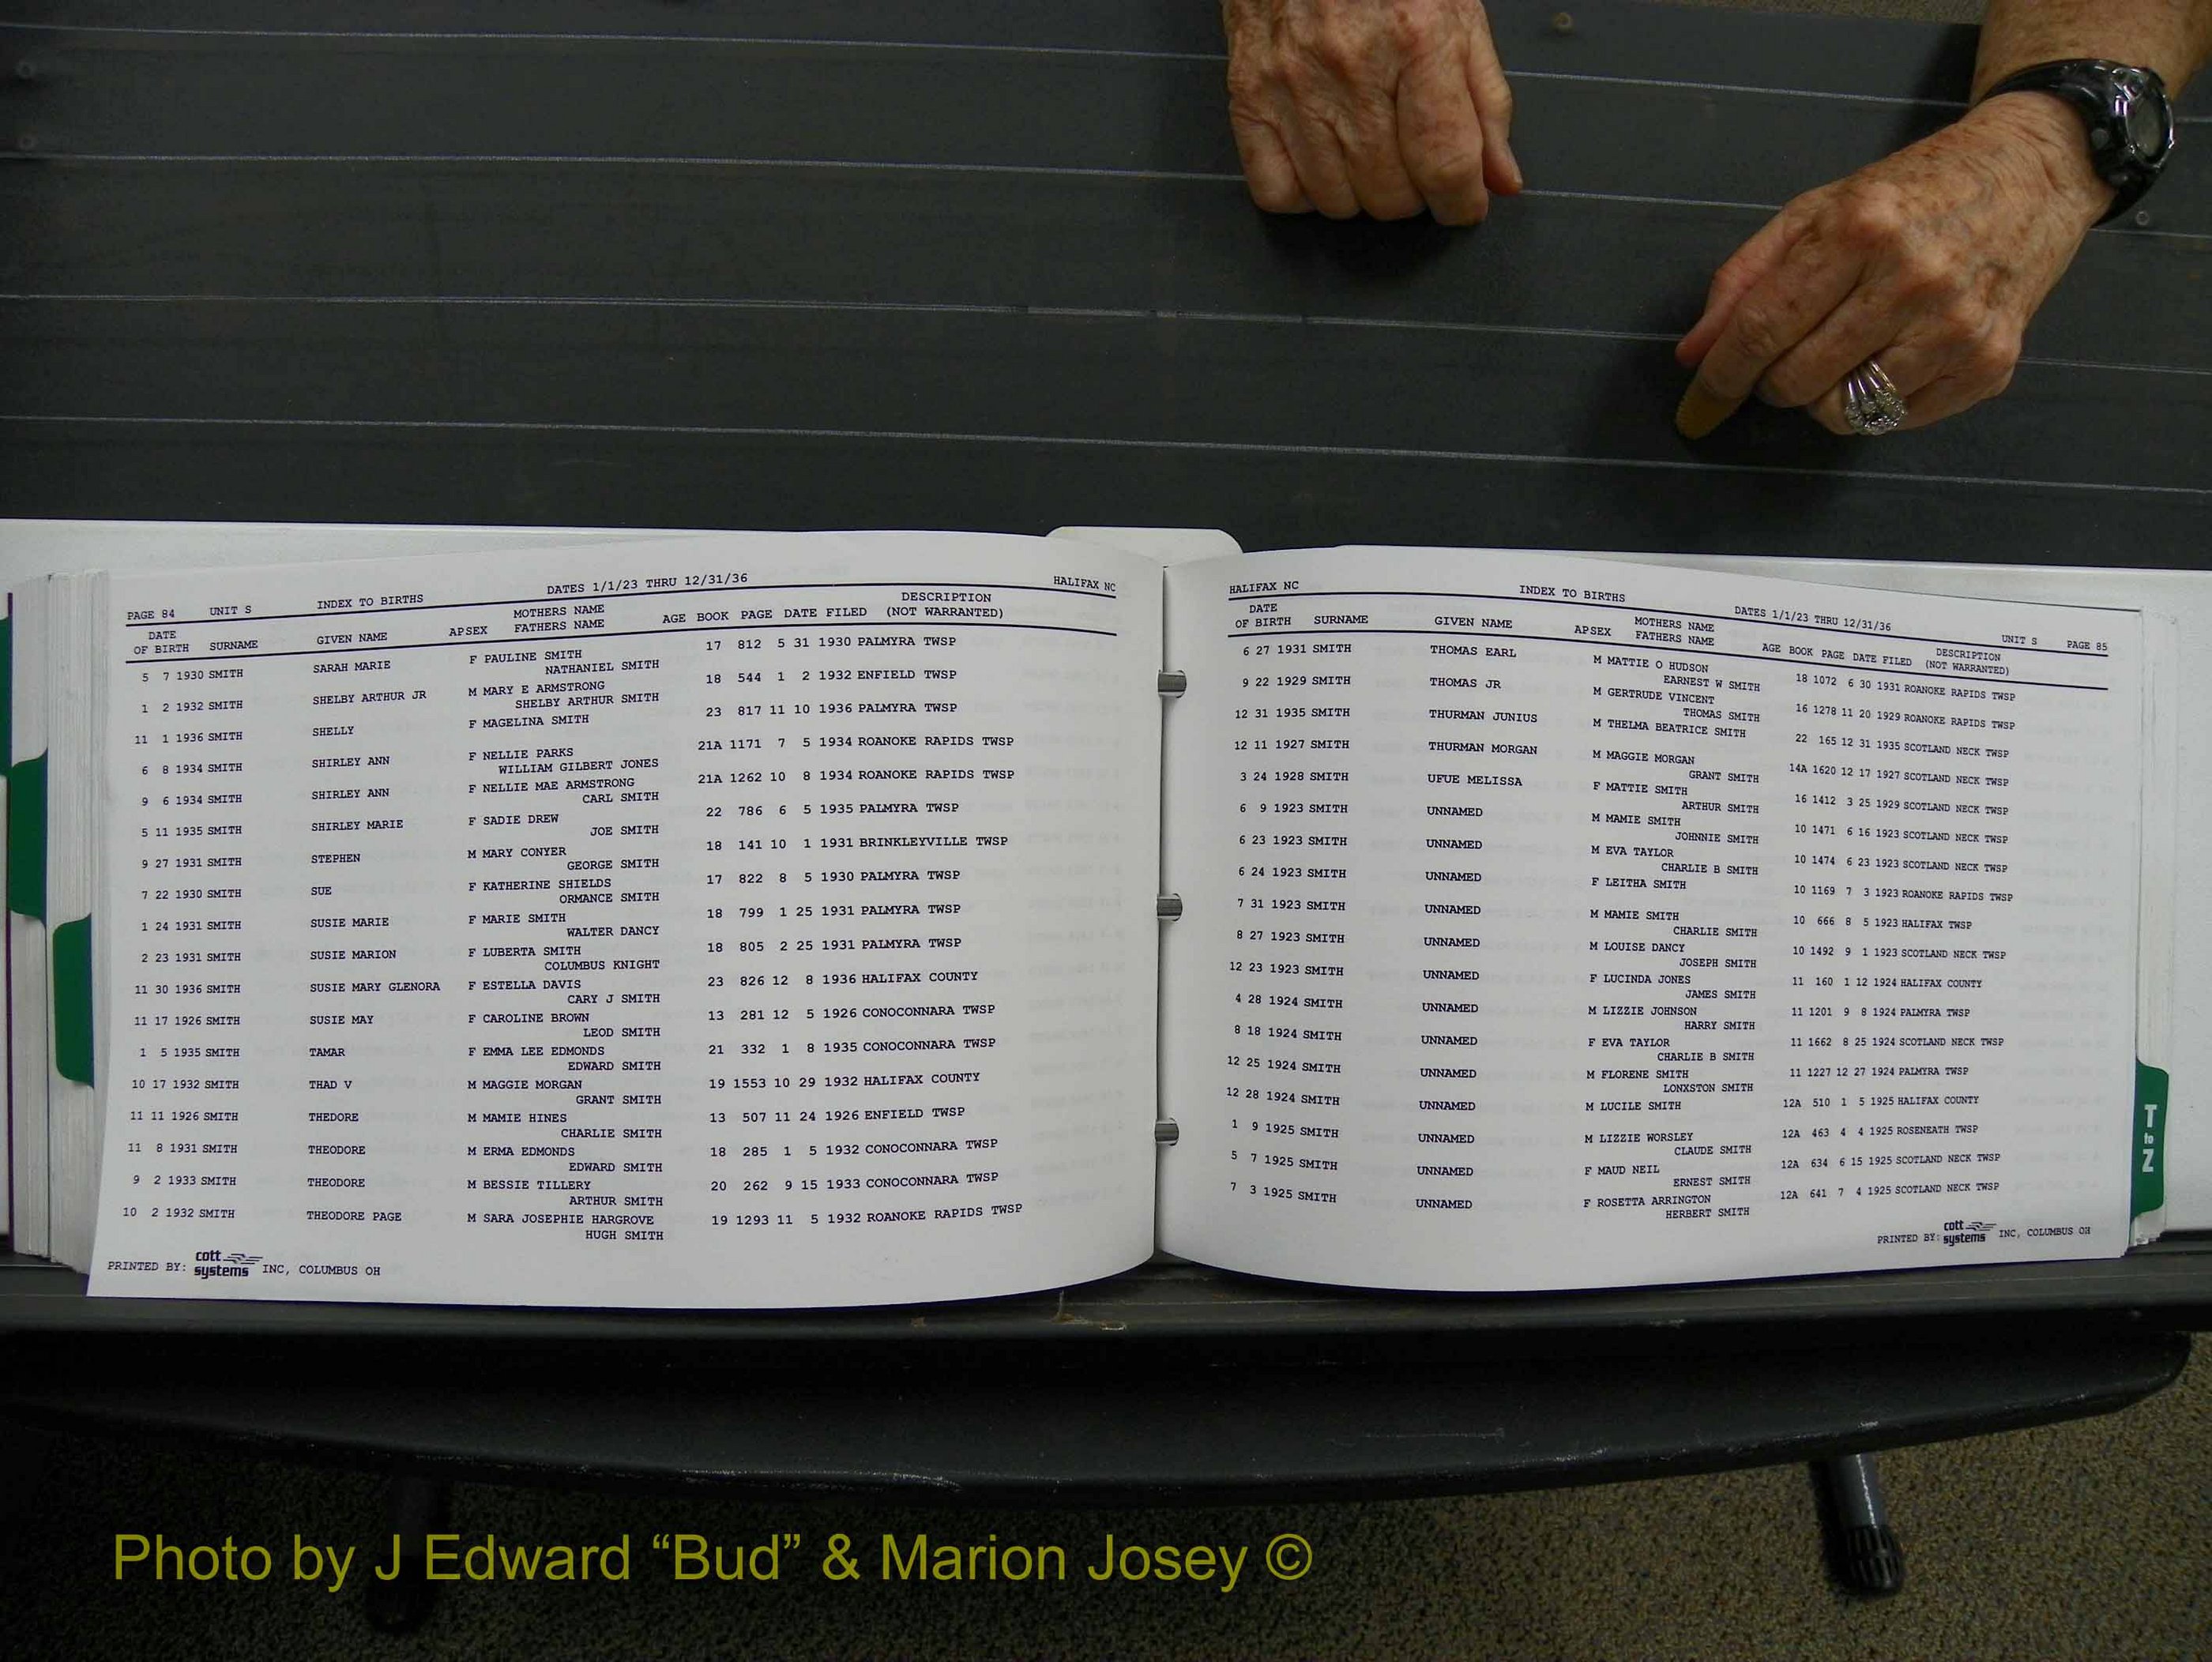 PAGE 84 UNIT S INDEX TO BIRTHS DATES 1/1/23 THRU 12/31/36 HALIFAX NC
DATE OF BIRTH SURNAME GIVEN NAME APSEX MOTHERS NAME FATHERS NAME AGE BOOK PAGE DATE FILED DESCRIPTION (NOT WARRANTED)
5 7 1930 SMITH SARAH MARIE F PAULINE SMITH 17 812 5 31 1930 PALMYRA TWSP
NATHANIEL SMITH
1 2 1932 SMITH SHELBY ARTHUR JR M MARY E ARMSTRONG 18 544 1 2 1932 ENFIELD TWSP
SHELBY ARTHUR SMITH
11 1 1936 SMITH SHELLY F MAGELINA SMITH 23 817 11 10 1936 PALMYRA TWSP
6 8 1934 SMITH SHIRLEY ANN F NELLIE PARKS 21A 1171 7 5 1934 ROANOKE RAPIDS TWSP
WILLIAM GILBERT JONES
9 6 1934 SMITH SHIRLEY ANN F NELLIE MAE ARMSTRONG 21A 1262 10 8 1934 ROANOKE RAPIDS TWSP
CARL SMITH
5 11 1935 SMITH SHIRLEY MARIE F SADIE DREW 22 786 6 5 1935 PALMYRA TWSP
JOE SMITH
9 27 1931 SMITH STEPHEN M MARY CONYER 18 141 10 1 1931 BRINKLEYVILLE TWSP
GEORGE SMITH
7 22 1930 SMITH SUE F KATHERINE SHIELDS 17 822 8 5 1930 PALMYRA TWSP
ORMANCE SMITH
1 24 1931 SMITH SUSIE MARIE F MARIE SMITH 18 799 1 25 1931 PALMYRA TWSP
WALTER DANCY
2 23 1931 SMITH SUSIE MARION F LUBERTA SMITH 18 805 2 25 1931 PALMYRA TWSP
COLUMBUS KNIGHT
11 30 1936 SMITH SUSIE MARY GLENORA F ESTELLA DAVIS 23 826 12 8 1936 HALIFAX COUNTY
CARY J SMITH
11 17 1926 SMITH SUSIE MAY F CAROLINE BROWN 13 281 12 5 1926 CONOCONNARA TWSP
LEOD SMITH
1 5 1935 SMITH TAMAR F EMMA LEE EDMONDS 21 332 1 8 1935 CONOCONNARA TWSP
EDWARD SMITH
10 17 1932 SMITH THAD V M MAGGIE MORGAN 19 1553 10 29 1932 HALIFAX COUNTY
GRANT SMITH
11 11 1926 SMITH THEDORE M MAMIE HINES 13 507 11 24 1926 ENFIELD TWSP
CHARLIE SMITH
11 8 1931 SMITH THEODORE M ERMA EDMONDS 18 285 1 5 1932 CONOCONNARA TWSP
EDWARD SMITH
9 2 1933 SMITH THEODORE M BESSIE TILLERY 20 262 9 15 1933 CONOCONNARA TWSP
ARTHUR SMITH
10 2 1932 SMITH THEODORE PAGE M SARA JOSEPHIE HARGROVE 19 1293 11 5 1932 ROANOKE RAPIDS TWSP
HUGH SMITH
PRINTED BY: cott systems INC, COLUMBUS OH
HALIFAX NC INDEX TO BIRTHS DATES 1/1/23 THRU 12/31/36 UNIT S PAGE 85
DATE OF BIRTH SURNAME GIVEN NAME APSEX MOTHERS NAME FATHERS NAME AGE BOOK PAGE DATE FILED DESCRIPTION (NOT WARRANTED)
6 27 1931 SMITH THOMAS EARL M MATTIE O HUDSON 18 1072 6 30 1931 ROANOKE RAPIDS TWSP
EARNEST W SMITH
9 22 1929 SMITH THOMAS JR M GERTRUDE VINCENT 16 1278 11 20 1929 ROANOKE RAPIDS TWSP
THOMAS SMITH
12 31 1935 SMITH THURMAN JUNIUS M THELMA BEATRICE SMITH 22 165 12 31 1935 SCOTLAND NECK TWSP
12 11 1927 SMITH THURMAN MORGAN M MAGGIE MORGAN 14A 1620 12 17 1927 SCOTLAND NECK TWSP
GRANT SMITH
3 24 1928 SMITH UFUE MELISSA F MATTIE SMITH 16 1412 3 25 1929 SCOTLAND NECK TWSP
ARTHUR SMITH
6 9 1923 SMITH UNNAMED M MAMIE SMITH 10 1471 6 16 1923 SCOTLAND NECK TWSP
JOHNNIE SMITH
6 23 1923 SMITH UNNAMED M EVA TAYLOR 10 1474 6 23 1923 SCOTLAND NECK TWSP
CHARLIE B SMITH
6 24 1923 SMITH UNNAMED F LEITHA SMITH 10 1169 7 3 1923 ROANOKE RAPIDS TWSP
7 31 1923 SMITH UNNAMED M MAMIE SMITH 10 666 8 5 1923 HALIFAX TWSP
CHARLIE SMITH
8 27 1923 SMITH UNNAMED M LOUISE DANCY 10 1492 9 1 1923 SCOTLAND NECK TWSP
JOSEPH SMITH
12 23 1923 SMITH UNNAMED F LUCINDA JONES 11 160 1 12 1924 HALIFAX COUNTY
JAMES SMITH
4 28 1924 SMITH UNNAMED M LIZZIE JOHNSON 11 1201 9 8 1924 PALMYRA TWSP
HARRY SMITH
8 18 1924 SMITH UNNAMED F EVA TAYLOR 11 1662 8 25 1924 SCOTLAND NECK TWSP
CHARLIE B SMITH
12 25 1924 SMITH UNNAMED M FLORENE SMITH 11 1227 12 27 1924 PALMYRA TWSP
LONXSTON SMITH
12 28 1924 SMITH UNNAMED M LUCILE SMITH 12A 510 1 5 1925 HALIFAX COUNTY
1 9 1925 SMITH UNNAMED M LIZZIE WORSLEY 12A 463 4 4 1925 ROSENEATH TWSP
CLAUDE SMITH
5 7 1925 SMITH UNNAMED F MAUD NEIL 12A 634 6 15 1925 SCOTLAND NECK TWSP
ERNEST SMITH
7 3 1925 SMITH UNNAMED F ROSETTA ARRINGTON 12A 641 7 4 1925 SCOTLAND NECK TWSP
HERBERT SMITH
PRINTED BY: cott systems INC, COLUMBUS OH
T to Z
Photo by J Edward “Bud” & Marion Josey ©